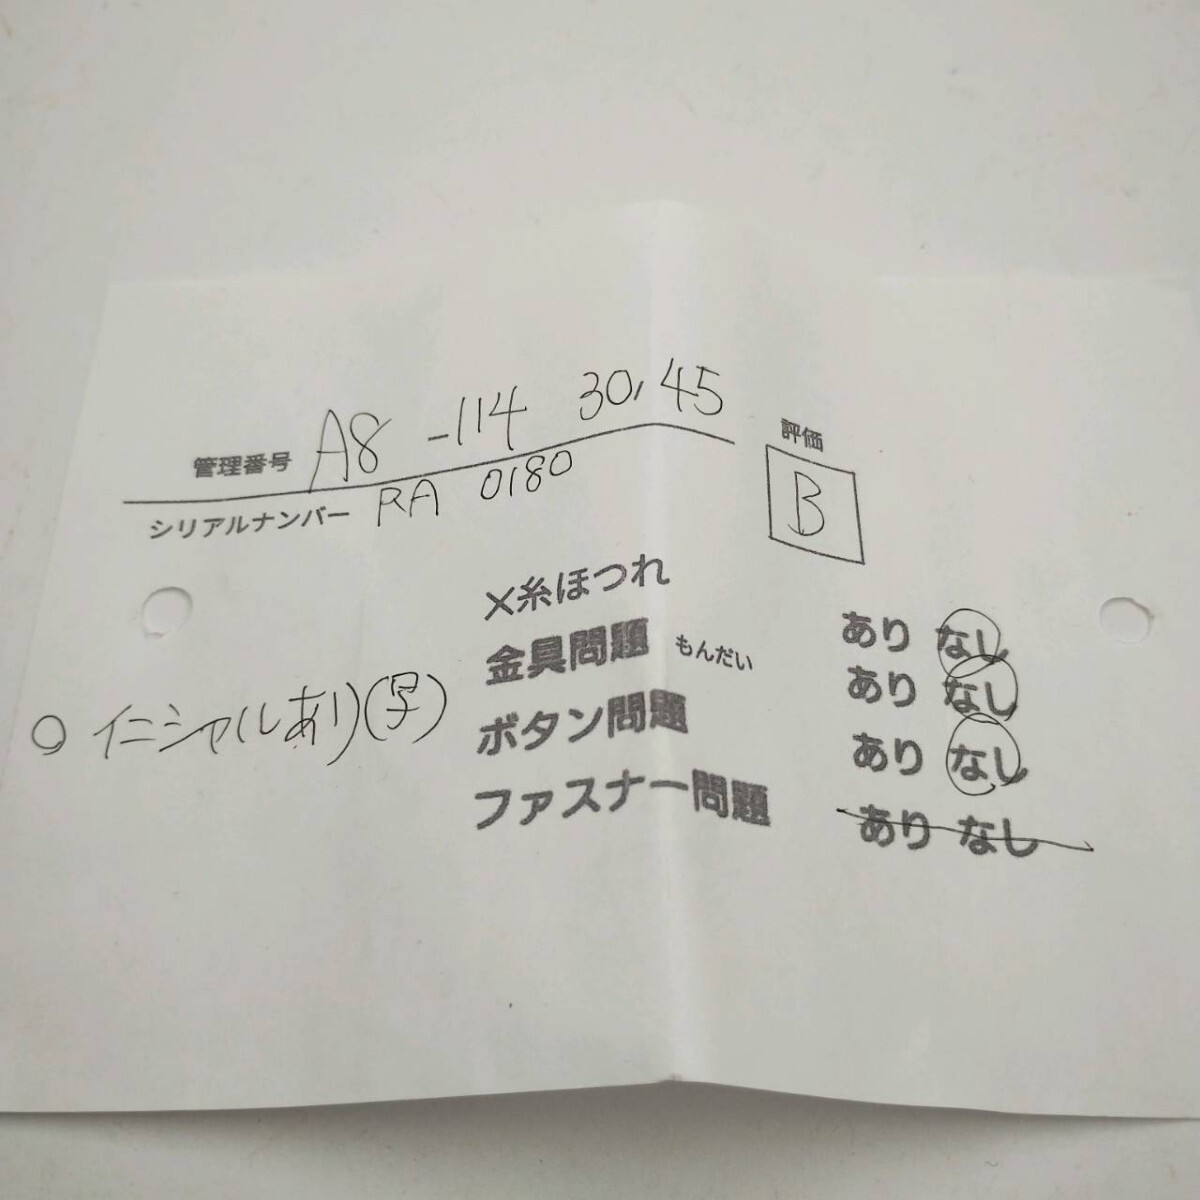 管理番号 A8 -114 30,45
シリアルナンバー RA 0180
評価
B
×糸ほつれ あり なし
金具問題 もんだい あり なし
ボタン問題 あり なし
ファスナー問題 あり なし
○ イニシャルあり(写)